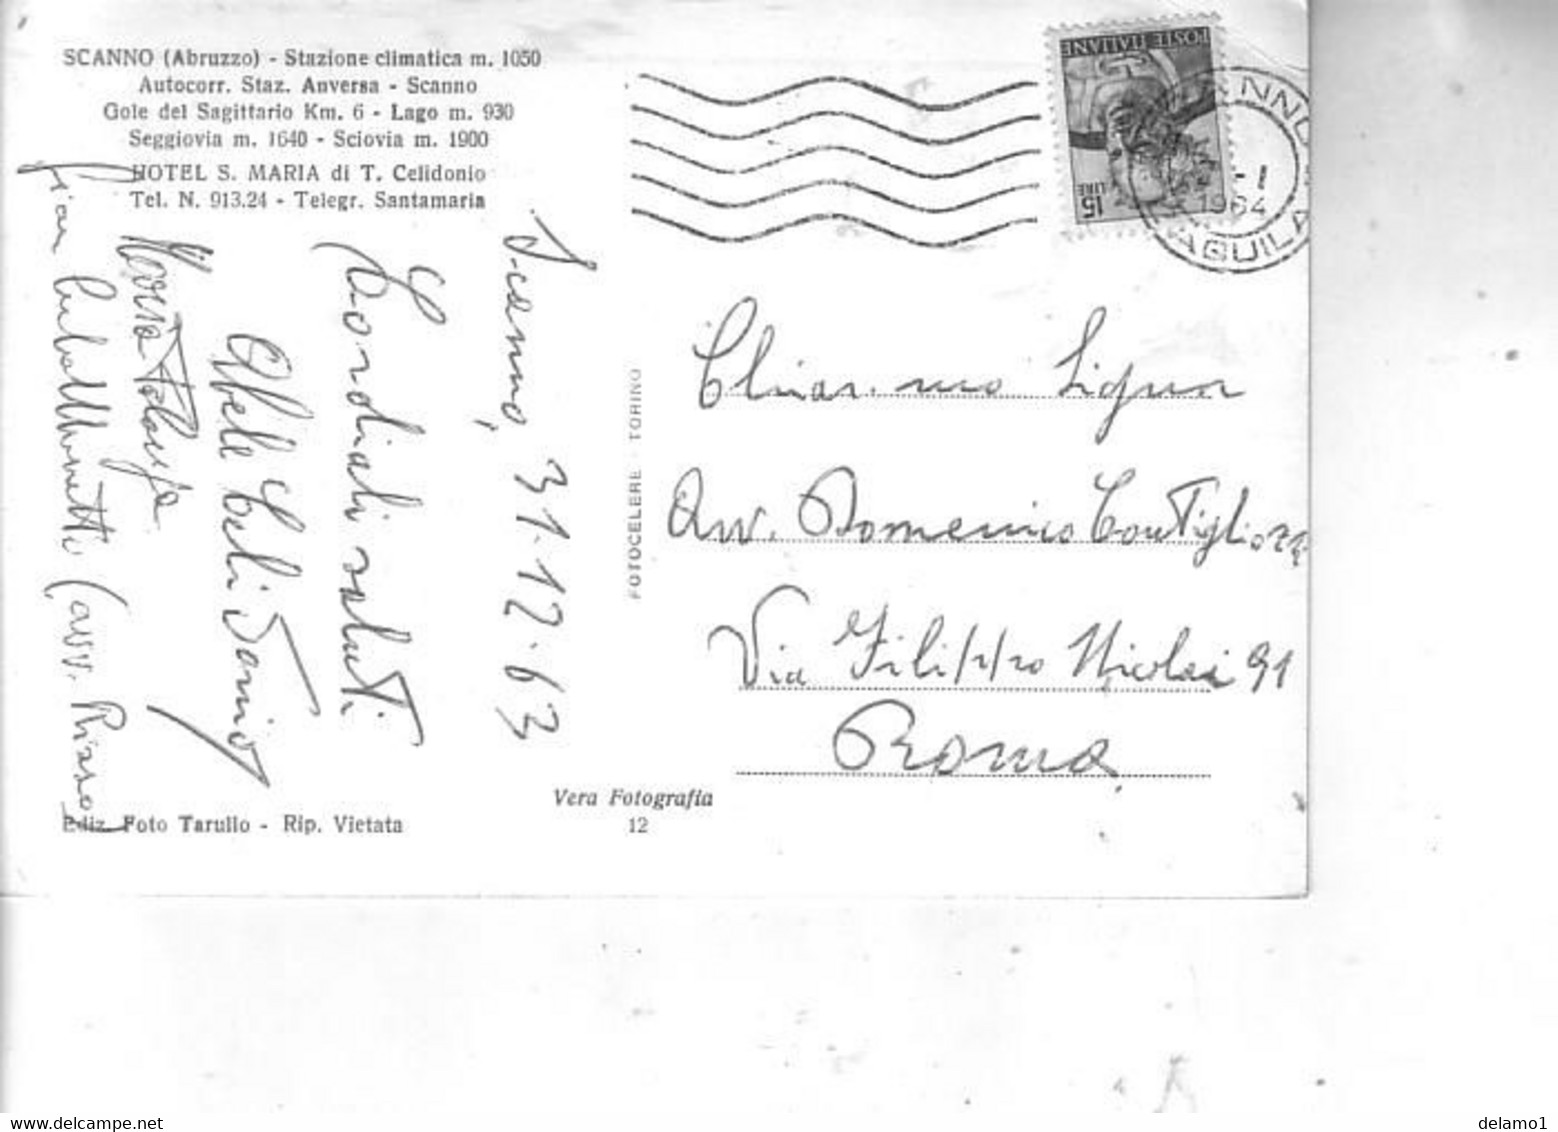 SCANNO (Abruzzo) - Stazione climatica m. 1050
Autocorr. Staz. Anversa - Scanno
Gole del Sagittario Km. 6 - Lago m. 930
Seggiovia m. 1640 - Sciovia m. 1900
HOTEL S. MARIA di T. Celidonio
Tel. N. 913.24 - Telegr. Santamaria
Scanno, 31.12.63
Cordiali saluti
Abele Celidonio
Maria
Gian (avv.
Ediz. Foto Tarullo - Rip. Vietata
Vera Fotografia
12
FOTOCELERE - TORINO
POSTE ITALIANE
15
LIRE
1964
AQUILA
Chiar.mo Signor
Avv. Domenico
Via Filippo Nicolai 91
Roma
delcampe.net
delamo1